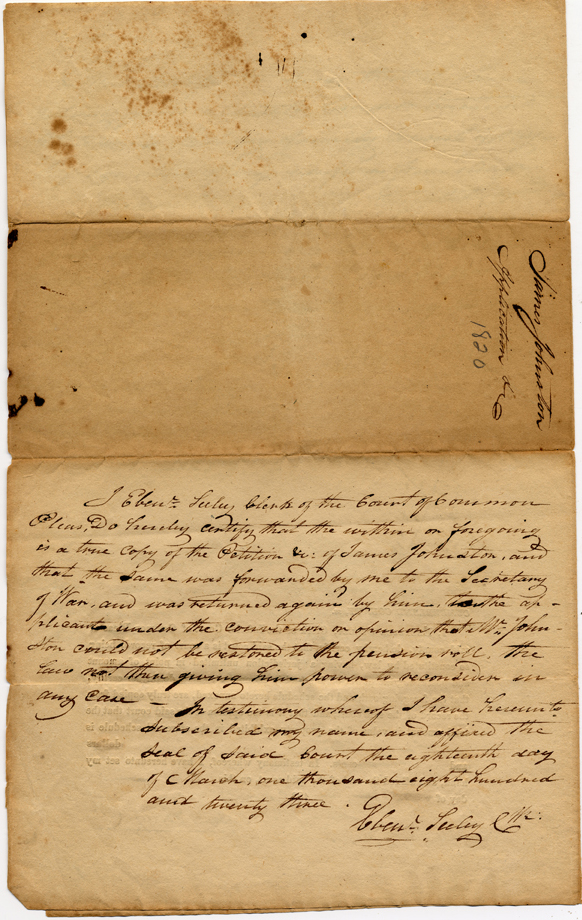 James Johnston
Application &c
1820
I Ebenr. Seeley Clerk of the Court of Common
Pleas, Do hereby certify that the within or foregoing
is a true copy of the Petition &c: of James Johnston, and
that the same was forwarded by me to the Secretary
of War, and was returned again by him, to the ap-
plicant under the conviction or opinion that Mr. John-
ston could not be restored to the pension roll, the
law not then giving him power to reconsider in
any case — In testimony whereof I have hereunto
subscribed my name, and affixed the
seal of said Court the eighteenth day
of March, one thousand eight hundred
and twenty three.
Ebenr. Seeley Clk.